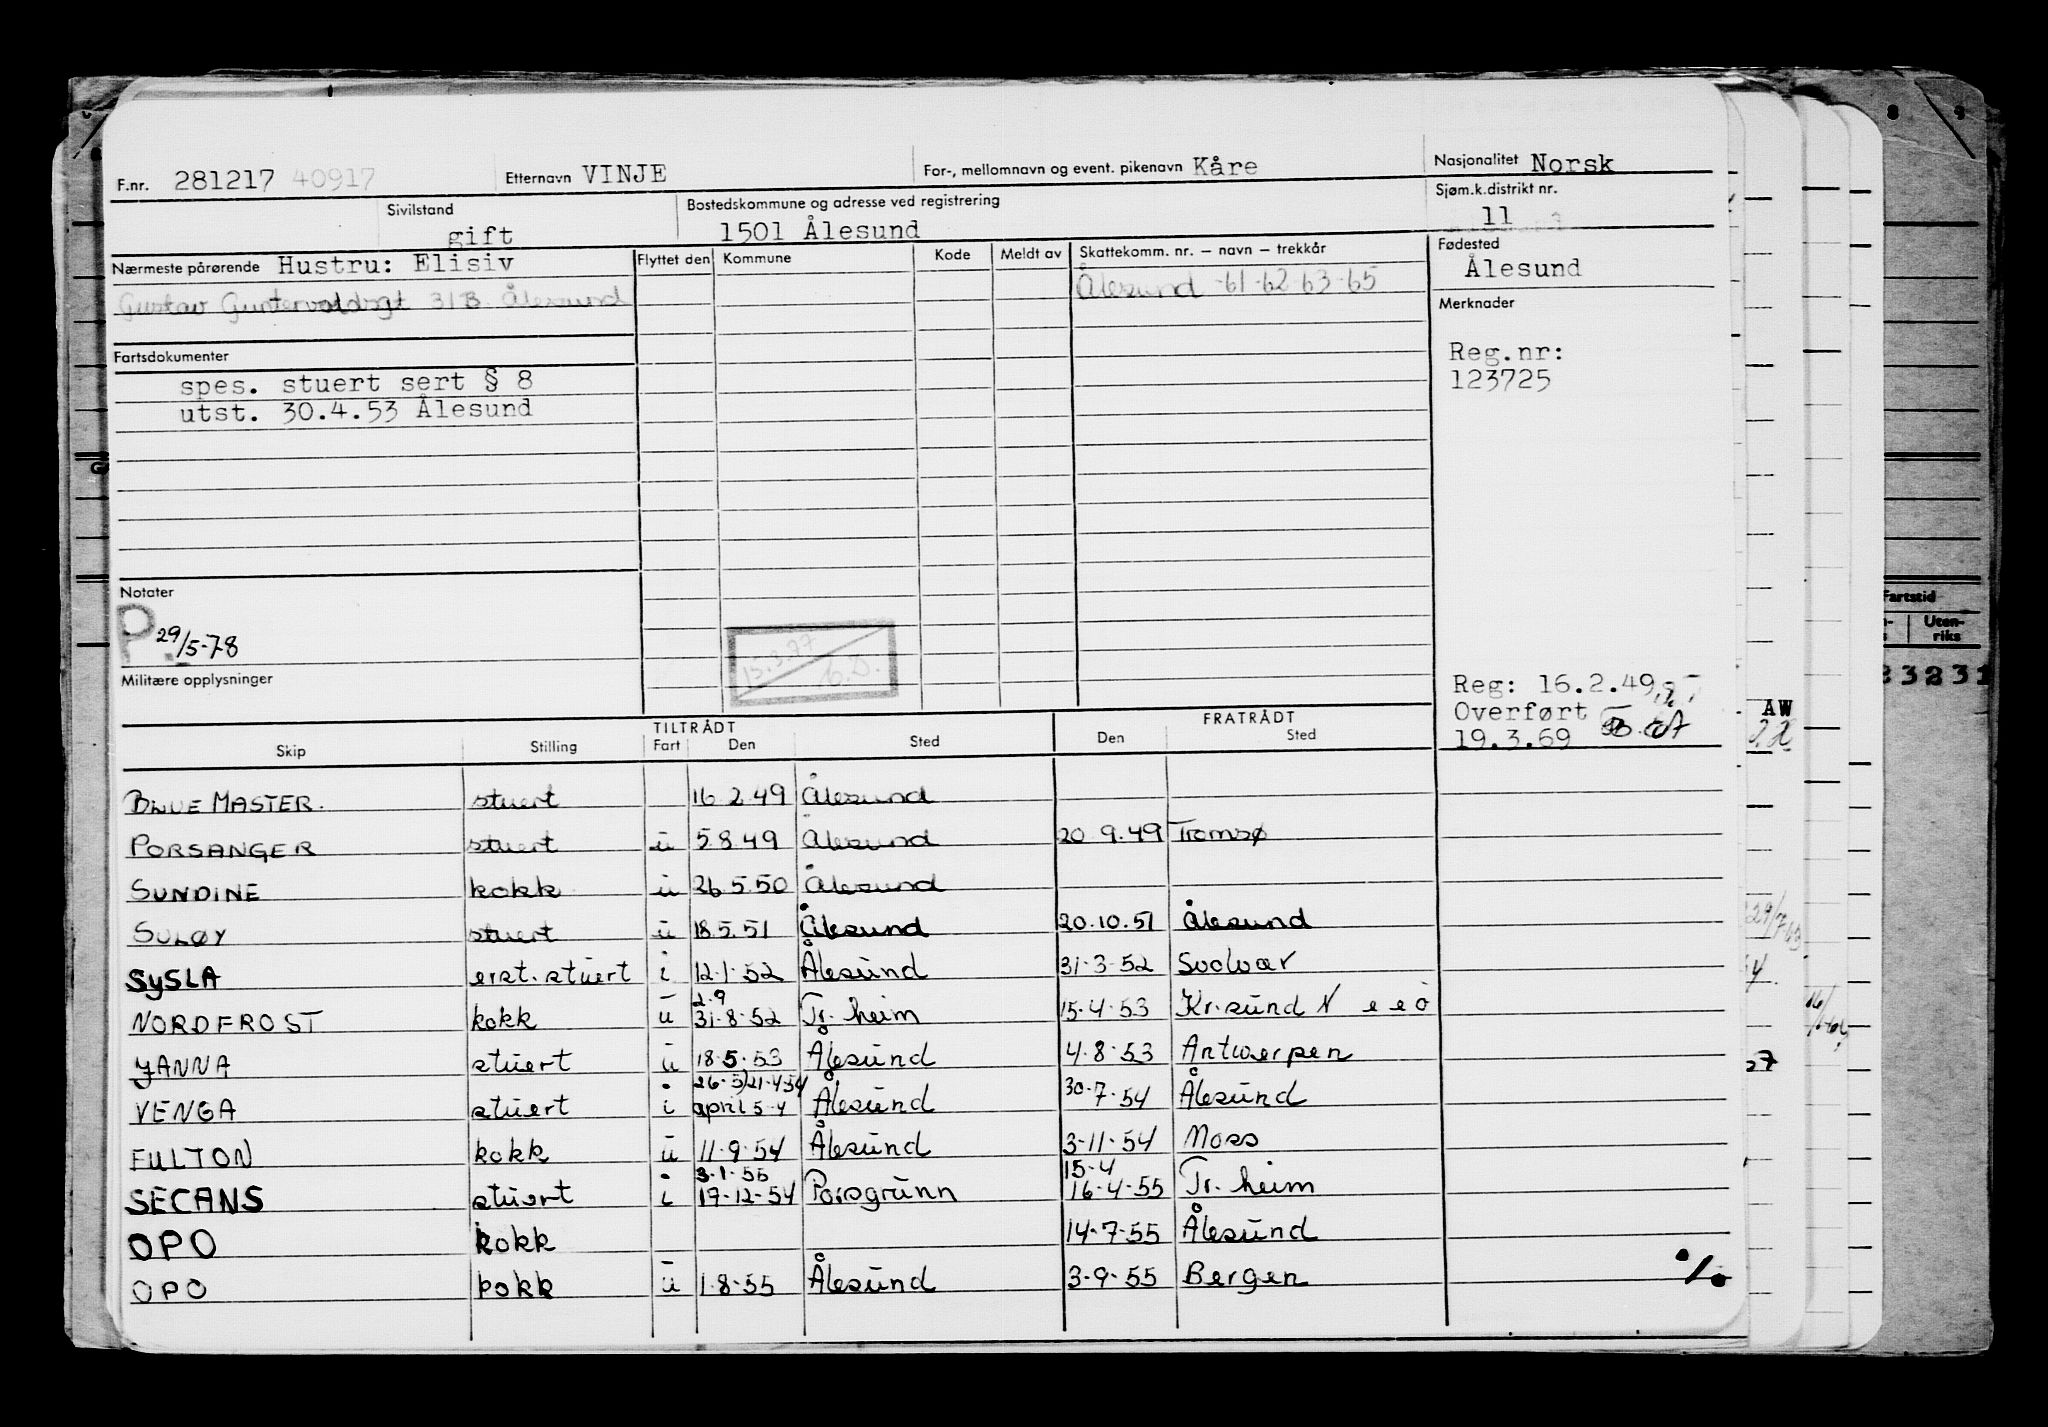 F.nr. 281217 40917 Etternavn VINJE For-, mellomnavn og event. pikenavn Kåre Nasjonalitet Norsk
Sivilstand gift Bostedskommune og adresse ved registrering 1501 Ålesund Sjøm.k.distrikt nr. 11
Nærmeste pårørende Hustru: Elisiv Flyttet den Kommune Kode Meldt av Skattekomm. nr. – navn – trekkår Fødested
Ålesund
Gustav 31B Ålesund Ålesund -61-62-63-65
Merknader
Fartsdokumenter
Reg.nr:
123725
spes. stuert sert § 8
utst. 30.4.53 Ålesund
Notater
P 29/5-78
15.3.77
Militære opplysninger
Reg: 16.2.49
Overført
19.3.69
TILTRÅDT FRATRÅDT
Skip Stilling Fart Den Sted Den Sted
BLUE MASTER. stuert 16.2.49 Ålesund
PORSANGER stuert u 5.8.49 Ålesund 20.9.49 Tromsø
SUNDINE kokk u 26.5.50 Ålesund
SULØY stuert u 18.5.51 Ålesund 20.10.51 Ålesund
SYSLA erst.stuert i 12.1.52 Ålesund 31.3.52 Svolvær
2.9
NORDFROST kokk u 31.8.52 Tr.heim 15.4.53 Kr.sund N
JANNA stuert u 18.5.53 Ålesund 4.8.53 Antwerpen
26.5/21.4.54
VENGA stuert i april 54 Ålesund 30.7.54 Ålesund
FULTON kokk u 11.9.54 Ålesund 3-11-54 Moss
3.1.55 15.4
SECANS stuert i 19-12-54 Porsgrunn 16-4-55 Tr.heim
OPO kokk 14-7-55 Ålesund
OPO kokk u 1.8.55 Ålesund 3-9-55 Bergen
Fartstid
Uten-
riks
AW